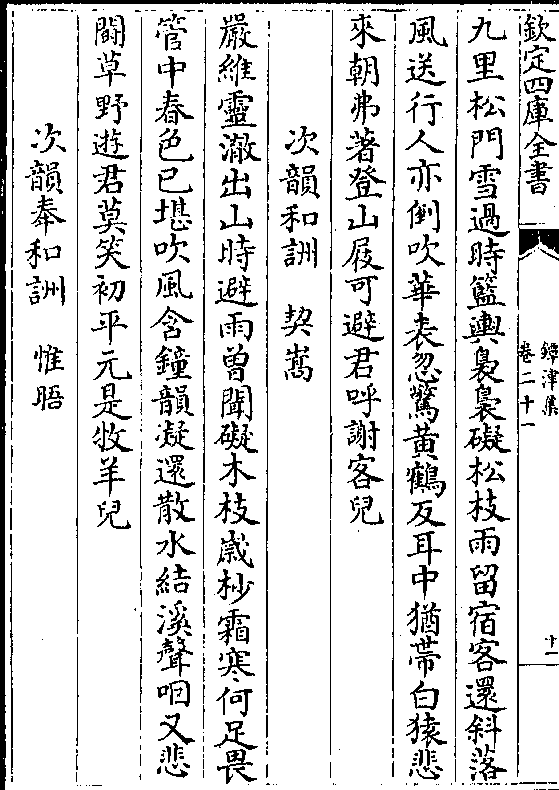 欽定四庫全書
鐔津集
卷二十一
十一
九里松門雪過時籃輿裊裊礙松枝雨留宿客還斜落
風送行人亦倒吹華表忽驚黄鶴反耳中猶帶白猿悲
來朝弗著登山屐可避君呼謝客兒
次韻和詶　契嵩
嚴維靈澈出山時避雨曾聞礙木枝嵗杪霜寒何足畏
管中春色已堪吹風含鐘韻凝還散水結溪聲咽又悲
鬭草野遊君莫笑初平元是牧羊兒
次韻奉和詶　惟晤